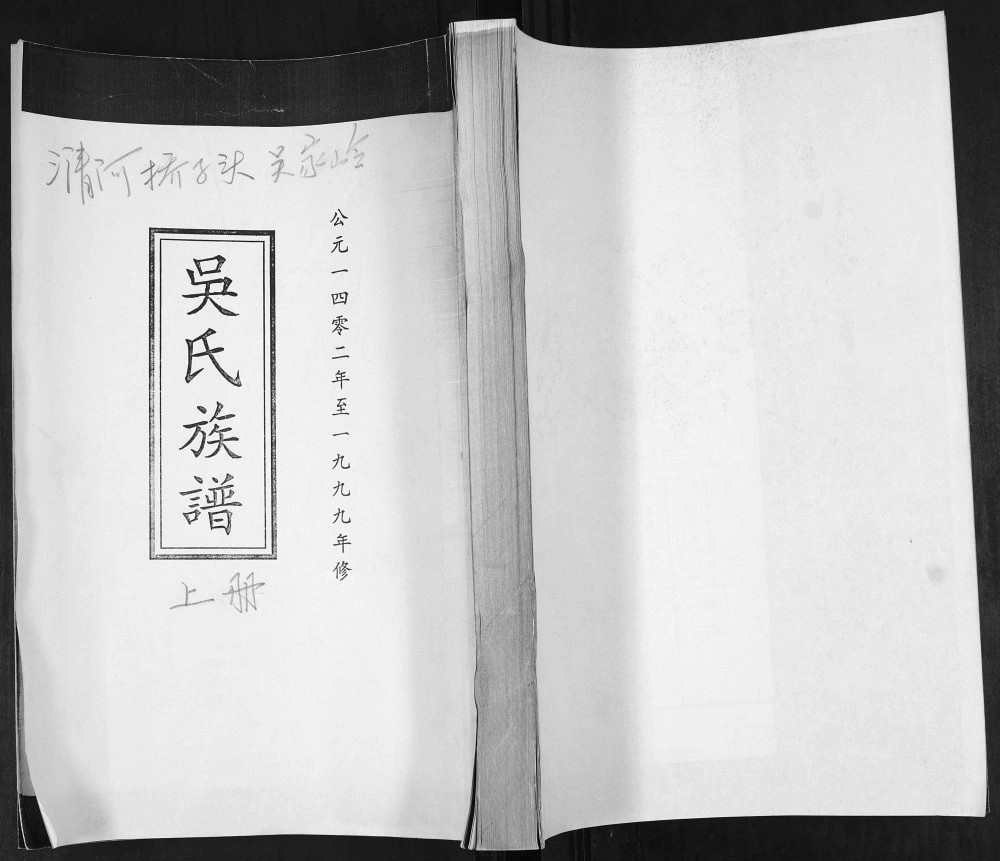 清河桥子头 吴家岭
公元一四零二年至一九九九年修
吳氏族譜
上册